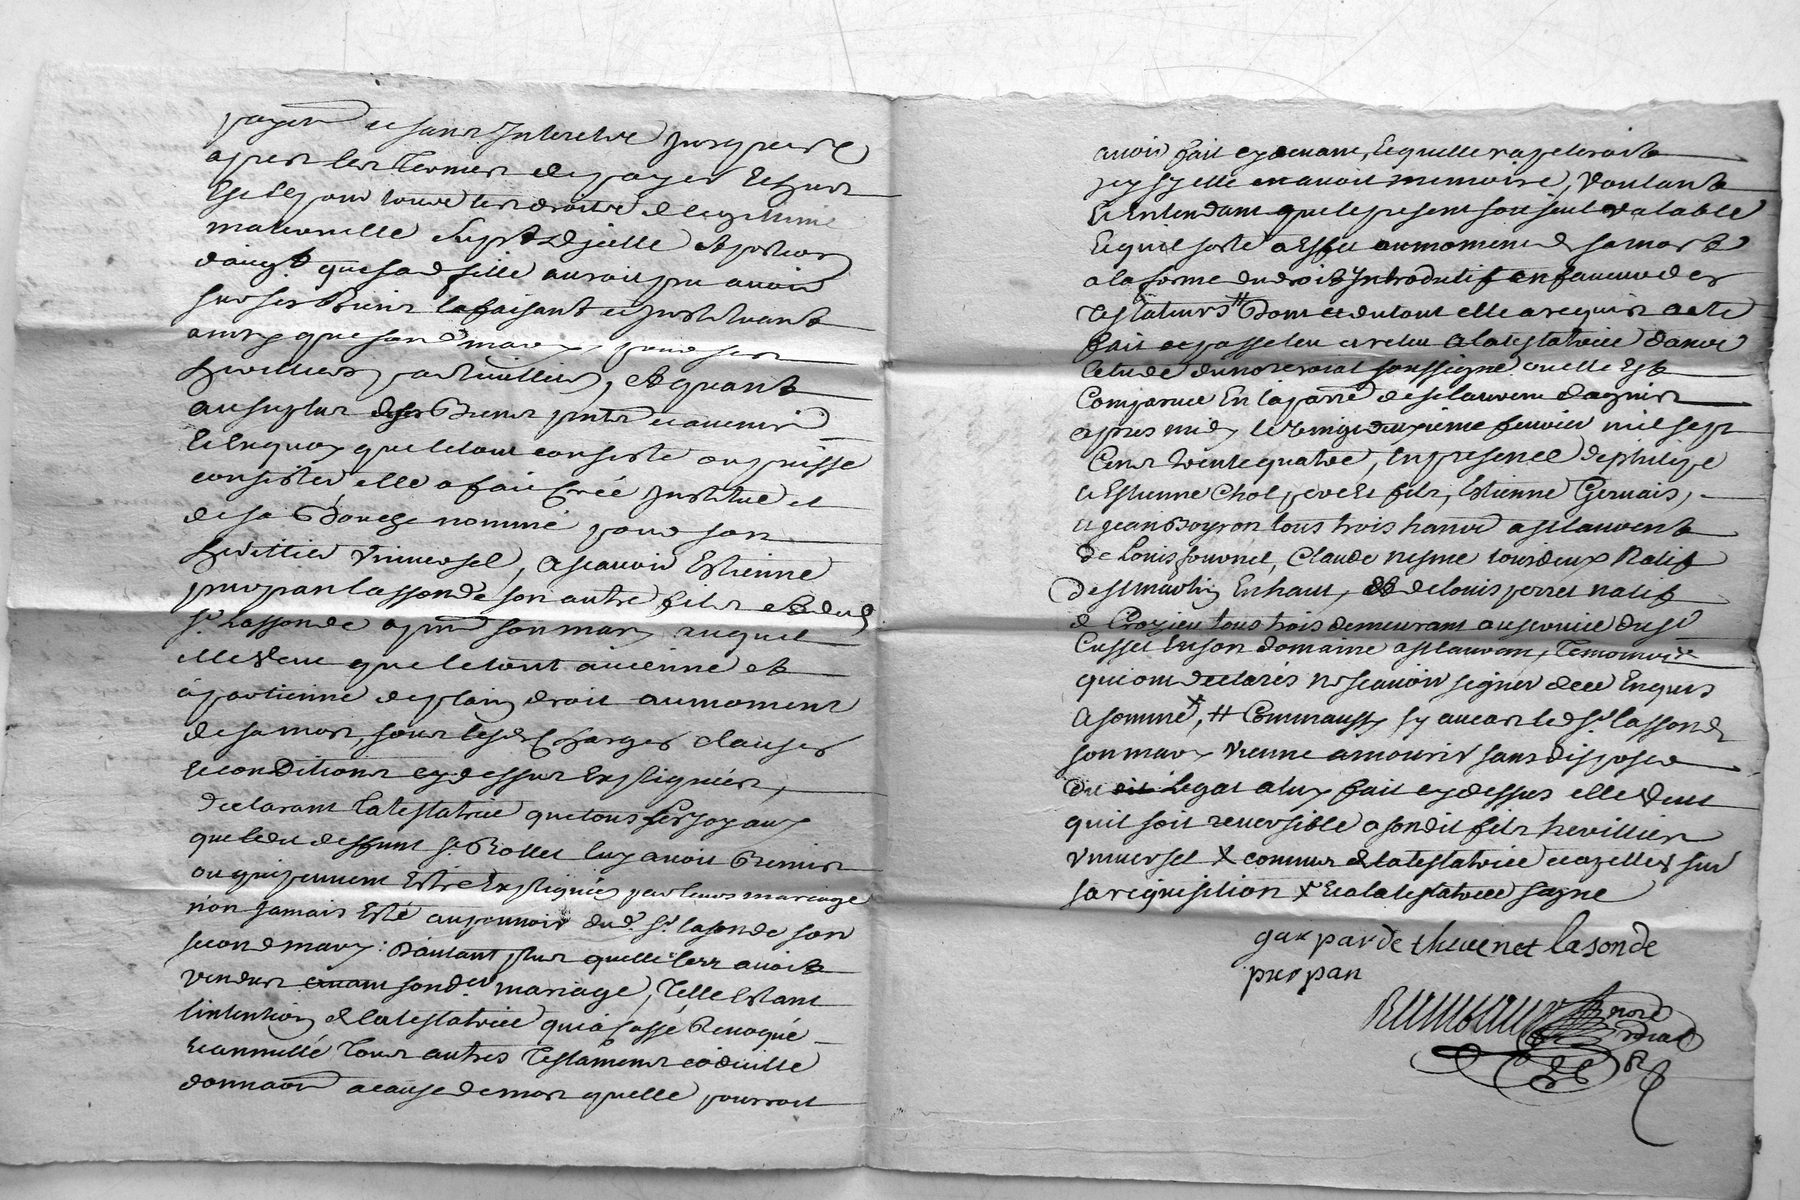 payem et sans Interetz jusques
apres les Termes de payer Echeus
Et ce pour tous les droitz de legitime
maternelle suplt d'jcelle
daugt que sad fille auroit pu avoir
sur ses Biens la faisant et jnstituant
ainsy que sond mary pour ses
heritiers particulliers, Et quant
au surplus de ses Biens pntz et avenir
Et en quoy que le tout consiste ou puisse
consister elle a fait Créé jnstitué et
de sa Bouche nommé pour son
heritier vniversel, a scauoir Estienne
purpan lassonde son autre fils et dud
Sr Lassonde apnt son mary auquel
elle veut que le tout auienne et
apartienne de plain droit au moment
de sa mort, sous lesd Charges clauses
et conditions cy dessus Expliquées,
declarant la testatrice que tous Les joyaux
que ledit deffunt Sr Rollet luy auoit Remis
ou qui peuuent Estre Expliqués par leurs mariage
n'on jamais Esté au pouuoir dud. Sr lasonde son
second mary: D'autant plus quelle les auoit
vendus sond mariage, Telle Estant
lintention de la testatrice qui a cassé Reuoqué
et annullé Tous autres Testamens codicille
donnaon a cause de mort quelle pourroit
auoir fait cy deuant, lequelle rapeleroit
jcy sy elle en auoit memoire, voulant
Et Entendant que le present soit seul valable
Et quil sorte a Effet au moment de sa mort
a la forme du droit Introdutif en faueur des
Testateurs # Dont et du tout elle a requis acte
fait et passé leu et releu a la testatrice dans
letude du no.re roial soussigné ou elle Est
Comparue En la parre de st laurent dagnier
apres midy le vingt deuxieme feurier mil sept
Cens trente quatre, en presence de philipe
et Estienne Chol pere et fils, Estienne Geruais,
et jean Boyron tous trois hants a st laurent
de Louis fournel, Claude nesme tous deux Natif
de st martin En haut, et de louis perret natif
de Craizieu tous trois demeurant au seruice du sr
Cusset En son domaine a st laurent, Temoins
qui ont declarés ne scauoir signer de ce Enquis
a sommé, # Comm aussy sy au cas led sr lassonde
son mary vienne a mourir sans disposer
du Legat a luy fait cy dessus elle veut
quil soit reuersible a sondit fils heritier
vniuersel X comme la testatrice sur
sa requisition X Et a la testatrice signé
gaspar de theuenet lasonde
purpan
no.re
roial